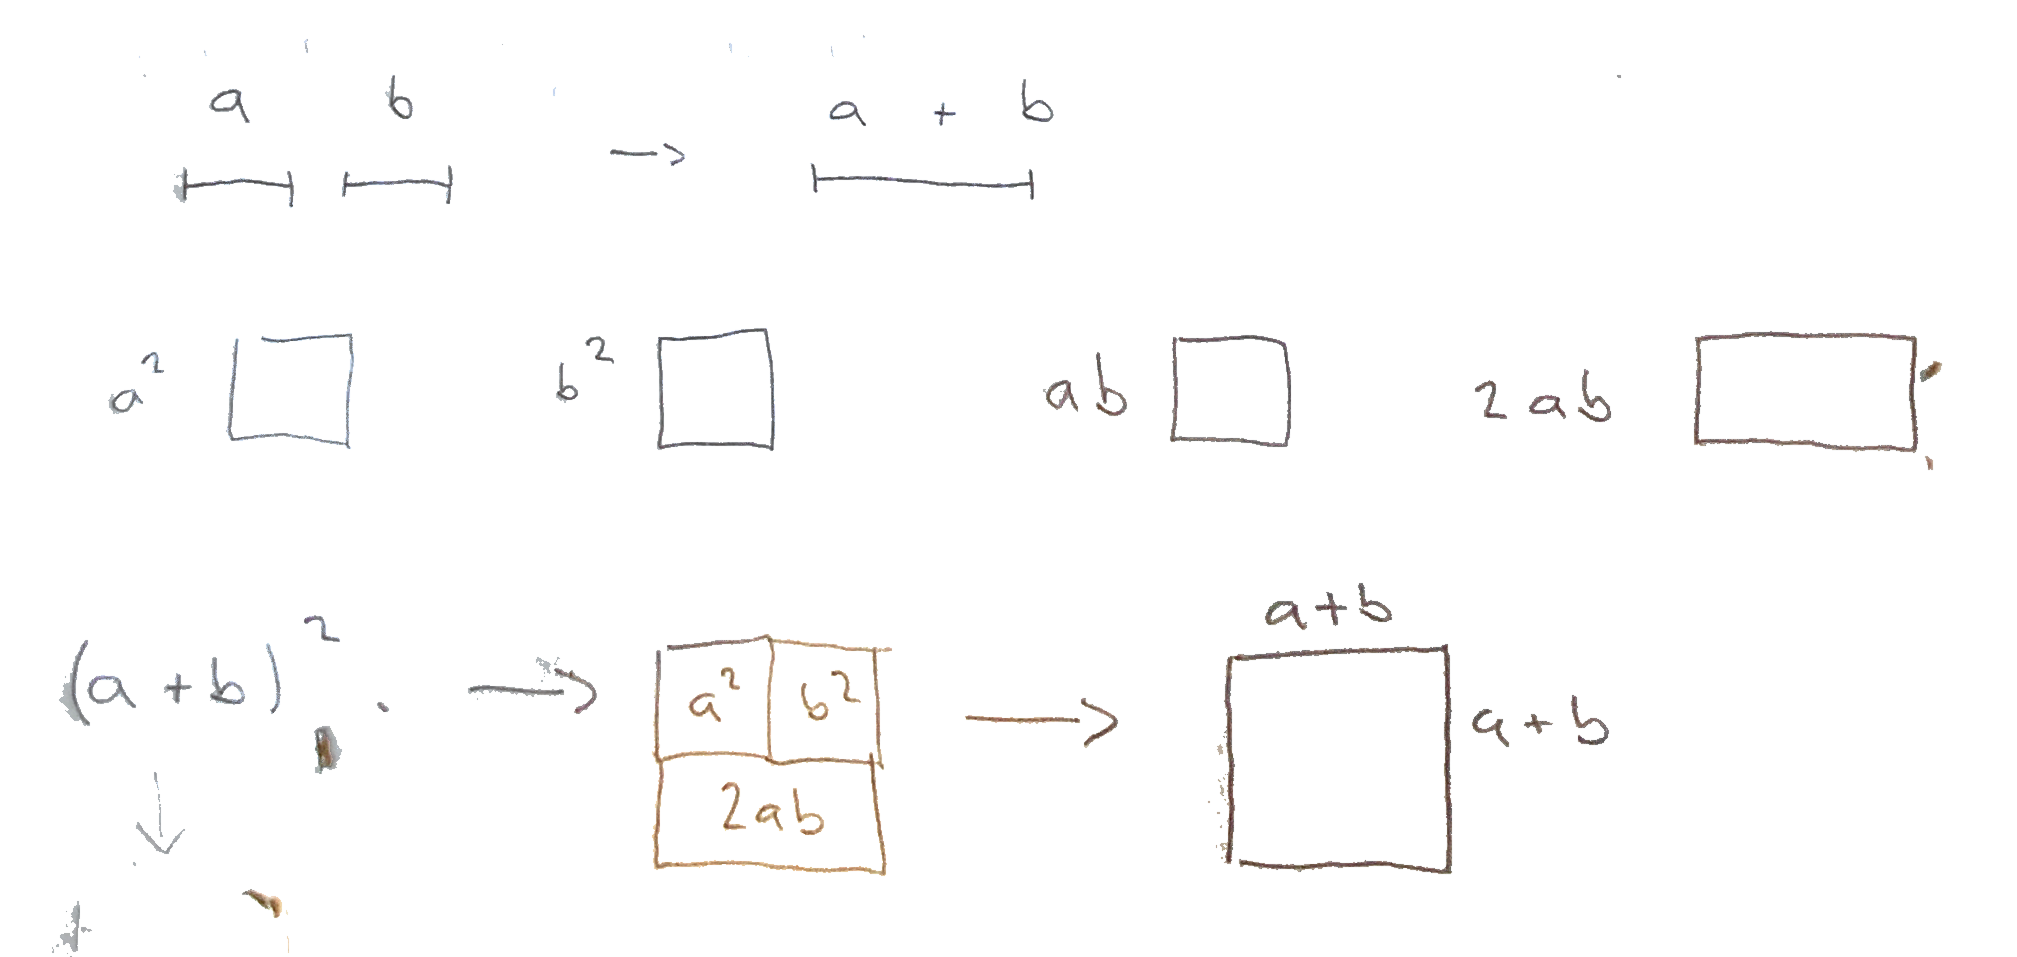 a b → a + b
a² b² ab 2ab
(a + b)². → a² b² → a+b
2ab a + b
↓